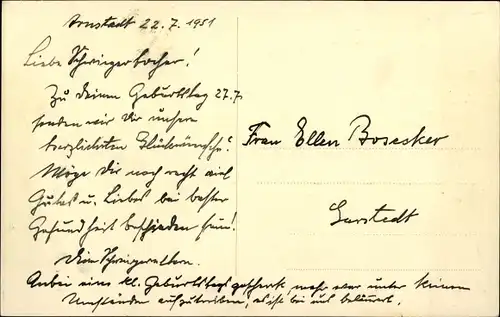 Arnstadt 22.7.1951
Liebe Schwiegertochter!
Zu Deinem Geburtstag 27.7.
senden wir Dir unsere
herzlichsten Glückwünsche!
Möge Dir noch recht viel
Gutes u. Liebes bei bester
Gesundheit beschieden sein!
Deine Schwiegereltern.
Anbei ein kl. Geburtstagsgeschenk, mehr war unter keinen
Umständen aufzutreiben, es ist bei uns
Frau Ellen Bosecker
Garstedt